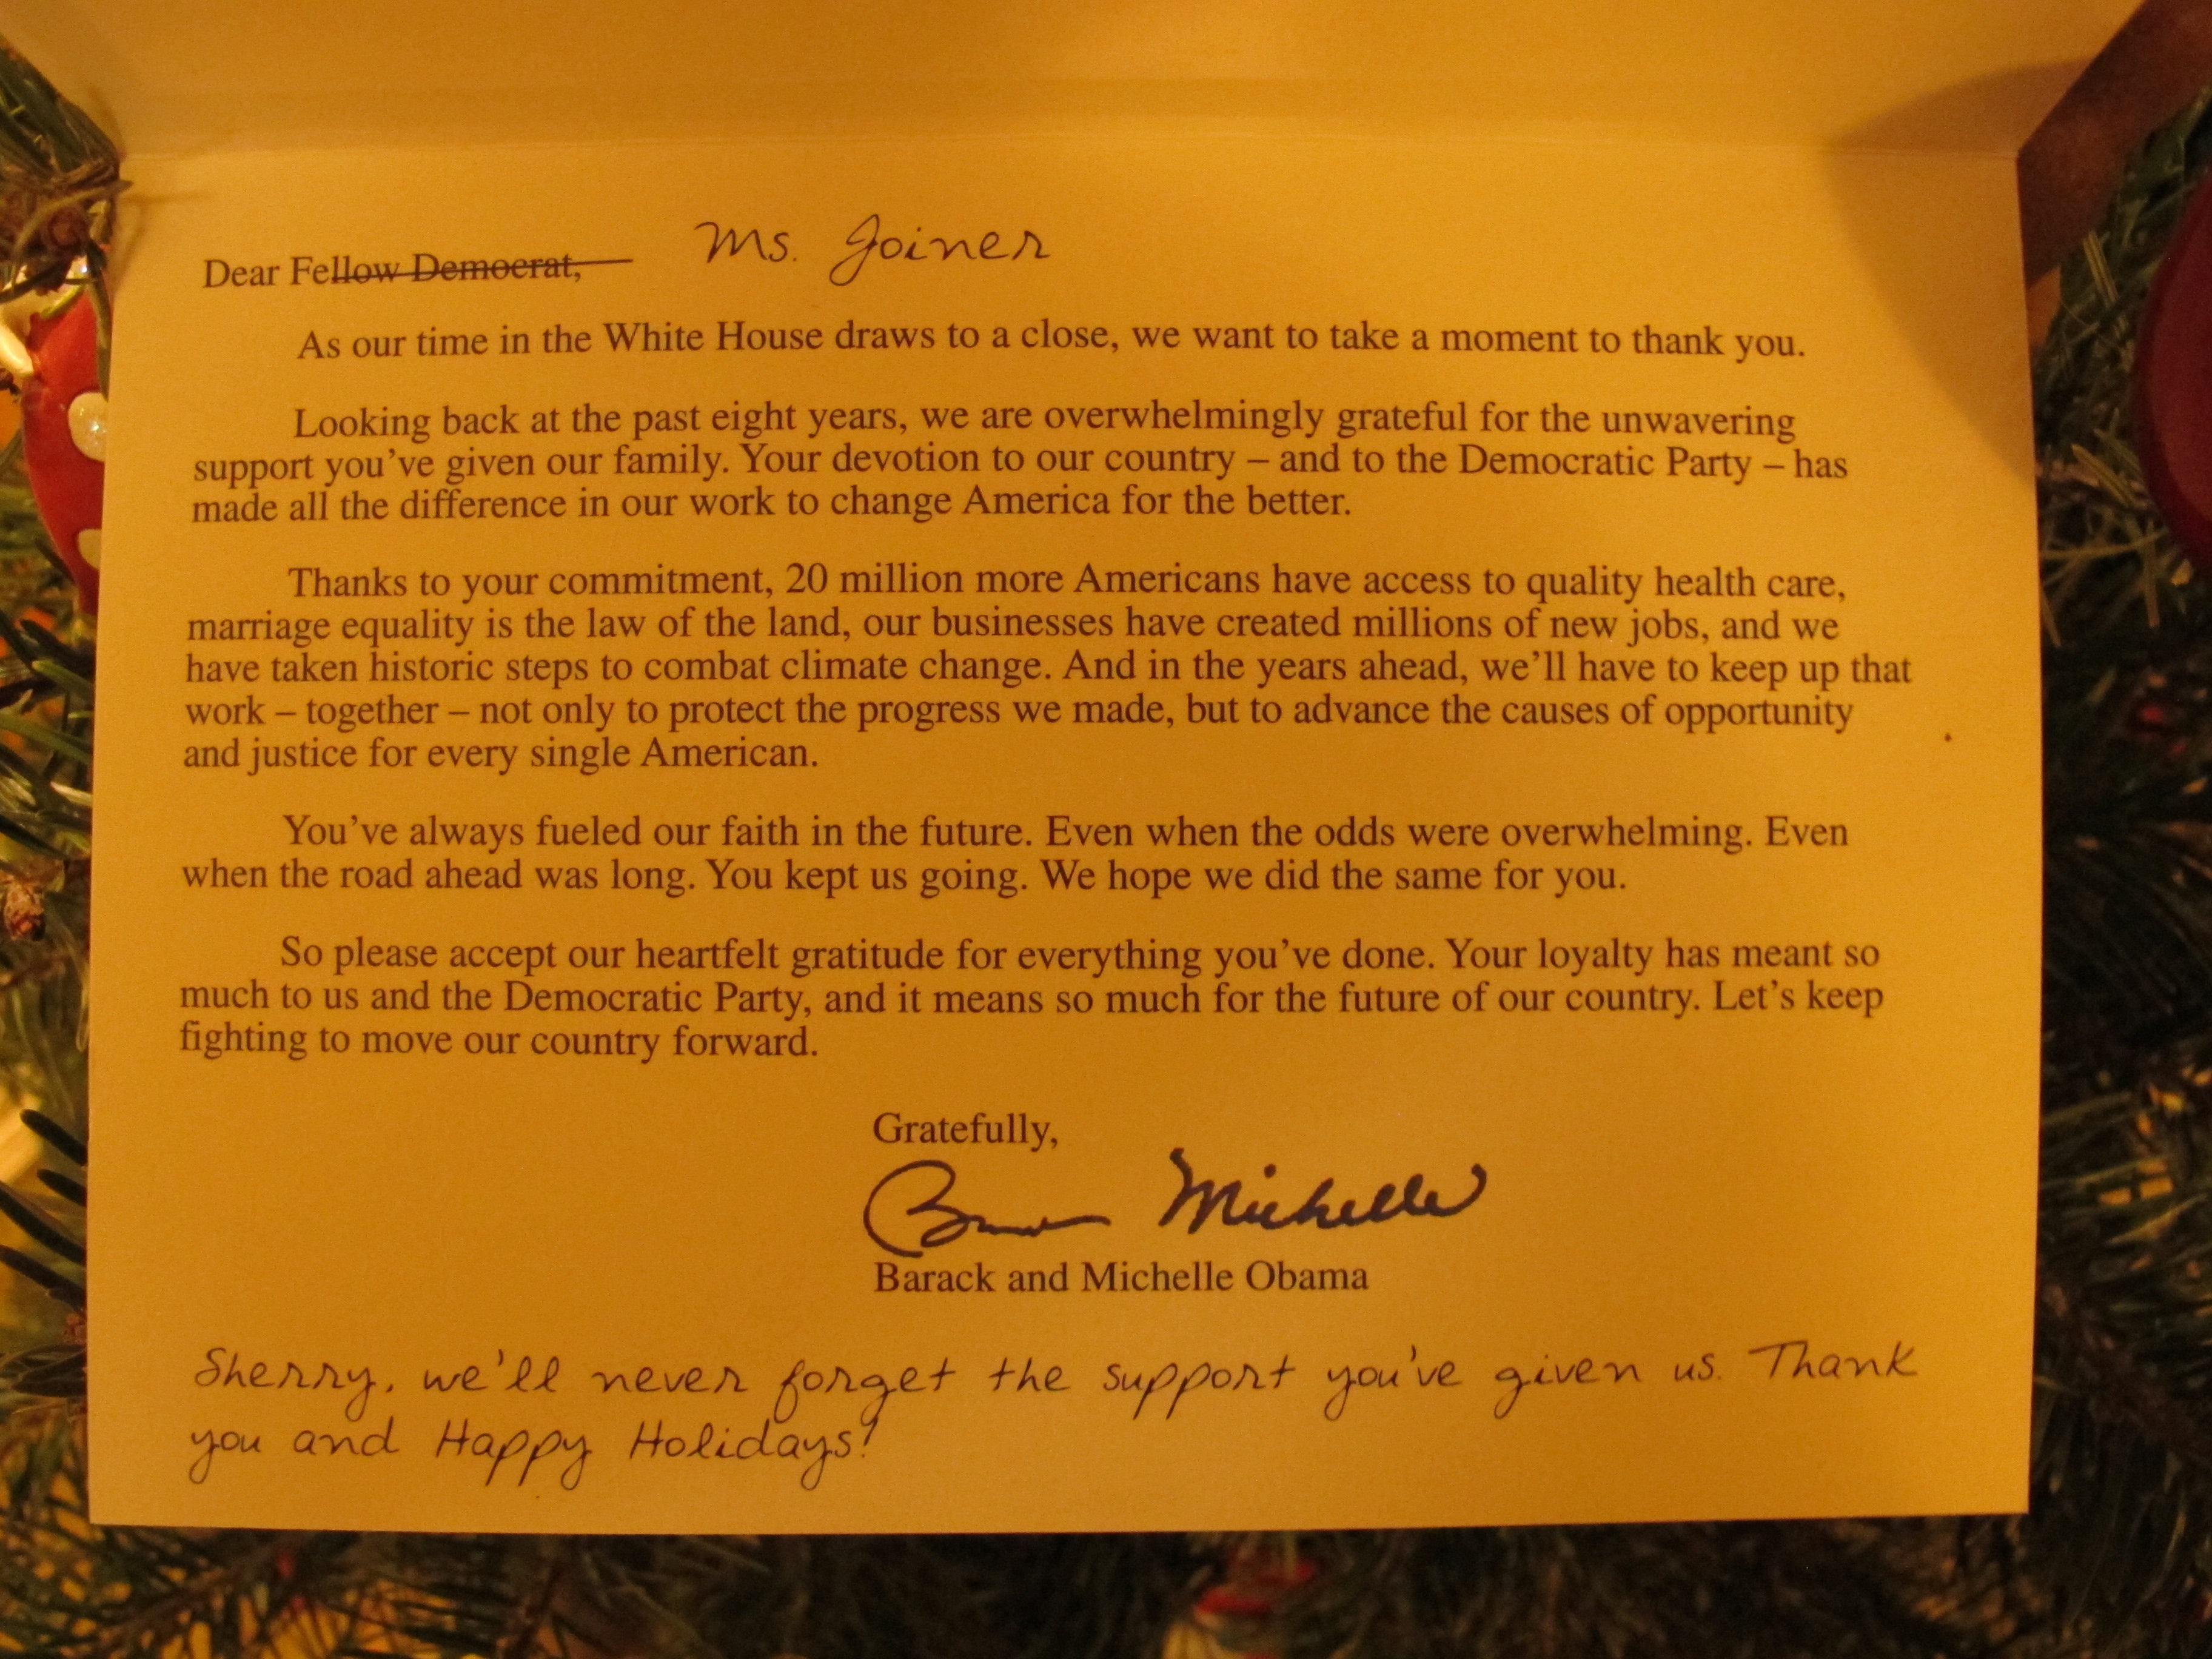 Dear Fellow Democrat, Ms. Joiner
As our time in the White House draws to a close, we want to take a moment to thank you.
Looking back at the past eight years, we are overwhelmingly grateful for the unwavering
support you've given our family. Your devotion to our country – and to the Democratic Party – has
made all the difference in our work to change America for the better.
Thanks to your commitment, 20 million more Americans have access to quality health care,
marriage equality is the law of the land, our businesses have created millions of new jobs, and we
have taken historic steps to combat climate change. And in the years ahead, we'll have to keep up that
work – together – not only to protect the progress we made, but to advance the causes of opportunity
and justice for every single American.
You've always fueled our faith in the future. Even when the odds were overwhelming. Even
when the road ahead was long. You kept us going. We hope we did the same for you.
So please accept our heartfelt gratitude for everything you've done. Your loyalty has meant so
much to us and the Democratic Party, and it means so much for the future of our country. Let's keep
fighting to move our country forward.
Gratefully,
Michelle
Barack and Michelle Obama
Sherry, we'll never forget the support you've given us. Thank
you and Happy Holidays!